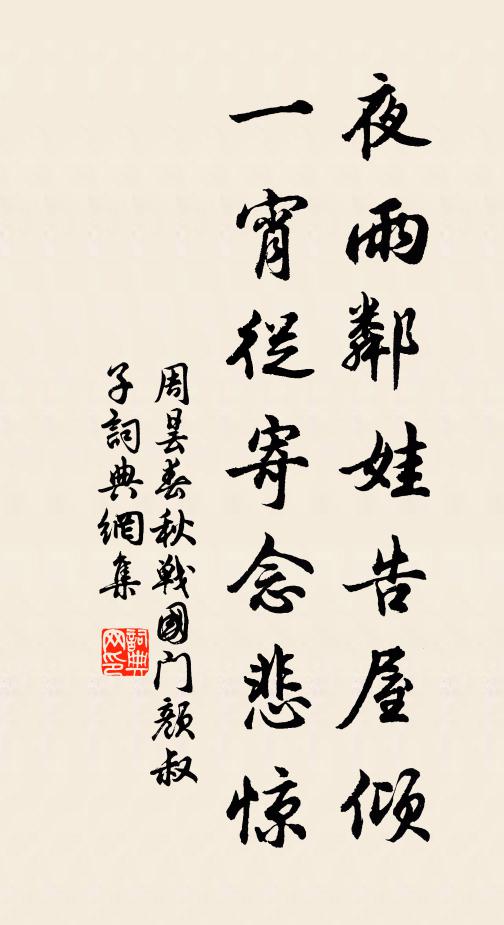 夜雨鄰娃告屋傾
一宵從寄念悲惊
周昙春秋戰國门顏叔
子詞典網集
詞典网印